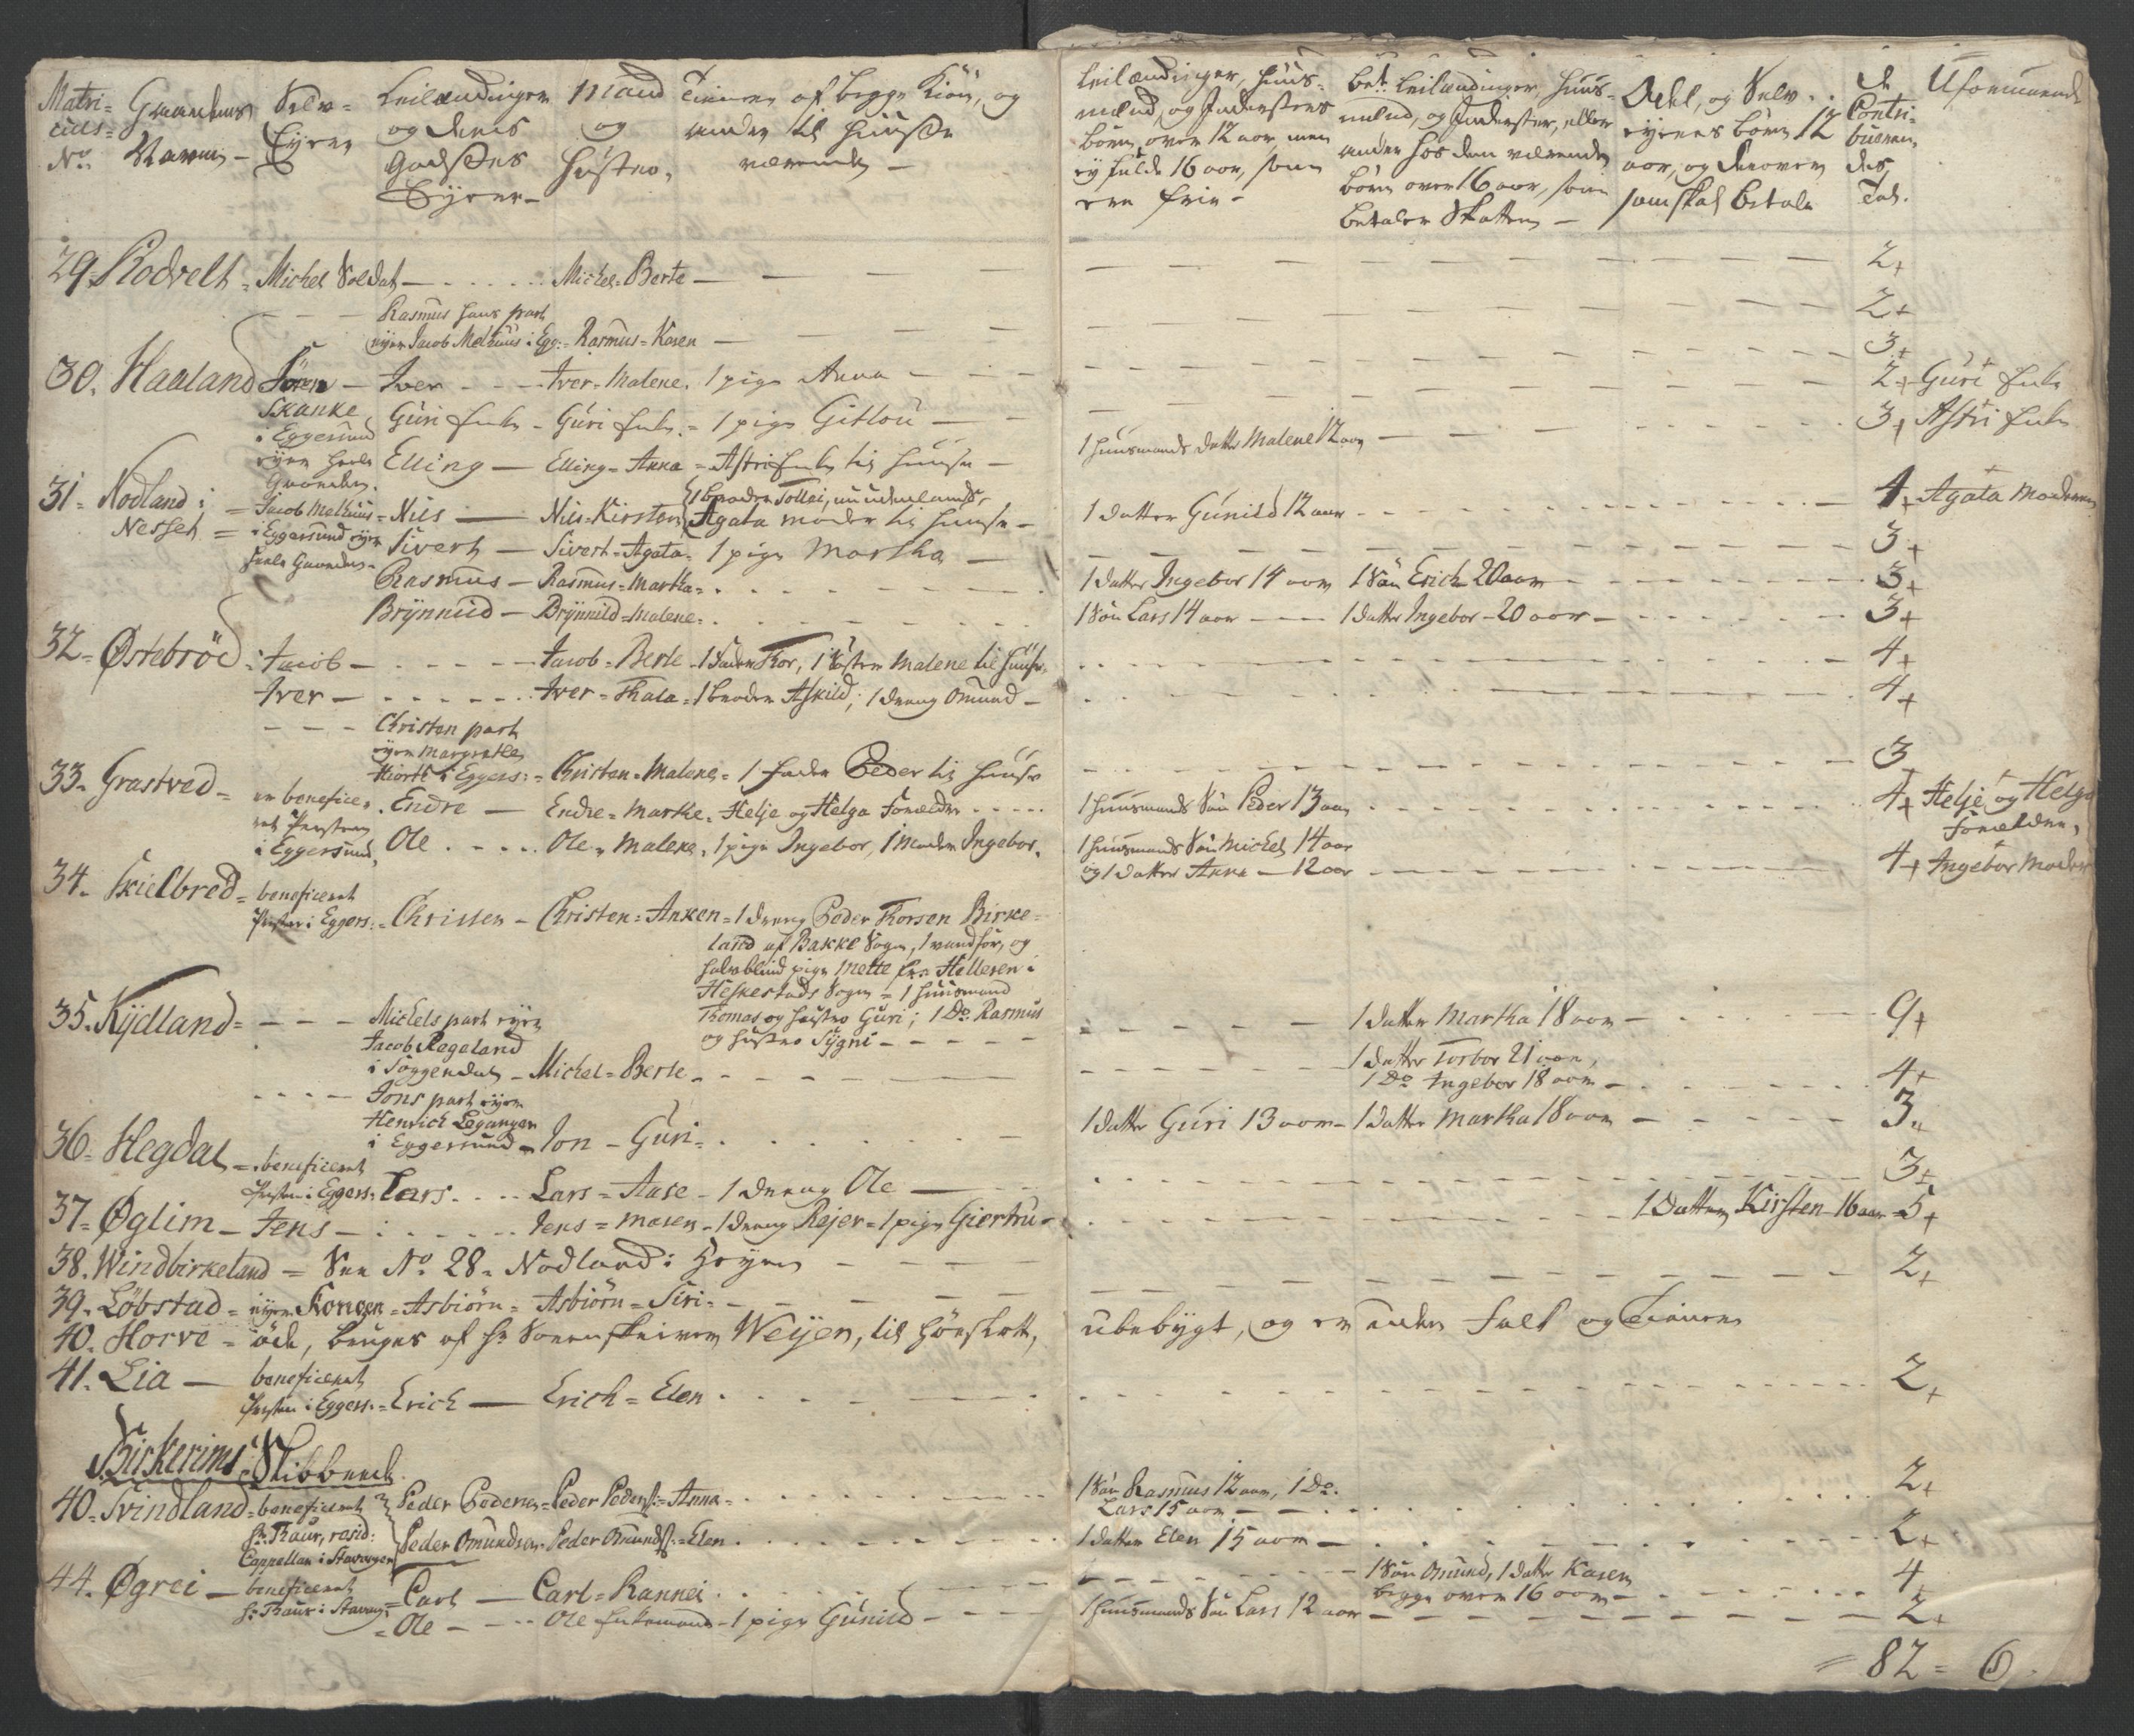 Matri=
culs=
No.
Gaardenes
Navne –
Selv=
Eyere
Leilændinger
og deres
Godsses
Eyere –
Mand
og
Hustro,
Tienere af begge Kiön, og
andre til Huuse
værende –
Leilændinger, Huus=
mænd, og Indersters
börn, over 12 aar, men
ey fulde 16 aar, som
ere frie –
bet: Leilændinger, Huus=
mænd, og Inderster, eller
andre hos dem værende
Börn over 16 aar, som
betaler Skatten –
Odel, og Selv=
eyeres börn 12
aar, og derover
som skal betale
de
Contri=
bueren=
des
Tal.
Uformuende
29. Rodvelt = Michel Soldat – Michel = Berte – 2
Rasmus hans part
eyer Jacob Melhuus i Egg: = Rasmus = Karen – 2
30. Haaland Sören – Iver – Iver = Malene. 1 pige Anna – 3
Skanke
i Eggersund
eyer heele
Gaarden.
Guri Enke – Guri Enke = 1 pige Gitlou – 2 Guri Enke
Elling – Elling = Anna = Astri Enke til Huuse – 1 huusmands datter Malene 12 aar – 3 Astri Enke
31. Nodland i
Nesset =
Jacob Melhuus
i Eggersund eyer
heele Gaarden –
Nils – Nils = Kirsten { 1 broder Tollai, uudenlands,
Agata moder til Huuse – 1 datter Gunild 12 aar – 4 Agata Moderen
Sivert – Sivert = Agata = 1 pige Martha – 3
Rasmus – Rasmus = Martha = 1 datter Ingebor 14 aar 1 Sön Erich 20 aar – 3
Brÿnnild – Brÿnnild = Malene = 1 Sön Lars 14 aar – 1 datter Ingebor – 20 aar – 3
32. Østebröd = Jacob – Jacob = Berte – 1 Fader Thor, 1 Söster Malene til Huuse. 4
Iver – Iver = Thala = 1 broder Askild, 1 dreng Omund – 4
Christen part
eyer Margrethe
Hiorth i Eggers: = Christen = Malene = 1 Fader Peder til Huuse 3
33. Grastved = er beneficeret Presten
i Eggersund,
Endre – Endre = Marthe = Helje og Helga Forældre – 1 huusmands Sön Peder 13 aar – 4 Helje, og Helga
Forældre,
Ole – Ole = Malene, 1 pige Ingebor, 1 Moder Ingebor, 1 huusmands Sön Michel 14 aar
og 1 datter Anna – 12 aar – 4 Ingebor Moder
34. Skielbred = beneficeret
Presten i Eggers: = Christen – Christen = Anken = 1 dreng Peder Thorsen Birke=
land af Bakke Sogn, 1 vanför, og
halvblind pige Mette fra Hellesen i
Heskestads Sogn = 1 Huusmand
Thomas og Hustro Guri; 1 Do. Rasmus
og Hustro Sÿgni – 1 datter Martha 18 aar – 9
35. Kÿdland = Michels part eyer
Jacob Rageland
i Soggendal – Michel = Berte – 1 datter Torbor 21 aar,
1 Do. Ingebor 18 aar – 4
Jons part eyer
Henrich Leganger
i Eggersund = Jon – Guri = 1 datter Guri 13 aar – 1 datter Martha 18 aar – 3
36. Hegdal = beneficeret
Presten i Eggers: Lars – Lars = Aase – 1 dreng Ole – 3
37. Øglim – Jens – Jens = Maren – 1 dreng Rejer = 1 pige Giertru – 1 datter Kirsten 16 aar – 5
38. Windbirkeland = See No. 28. Nodland i Heyen – 2
39. Löbstad = eyer Kongen = Asbiörn = Asbiörn = Siri =
40. Horve = öde, bruges af Hr. Sorenskriver Weÿen, til höeslett, ubebygt, og er uden folk og Tienere
41. Lia – beneficeret
Presten i Eggers: = Erich – Erich = Elen – 2
Birkerims Skibbrede.
40. Svindland = beneficeret
Hr. Raur, resid:
Cappellan i Stavanger
Peder Pedersen = Peder Peders: = Anna = 1 Sön Rasmus 12 aar, 1 Do.
Lars 15 aar – 2
Peder Omundsen = Peder Omunds: = Elen – 1 datter Elen 15 aar – 2
44. Øgrei – beneficeret
Hr. Raur i Stavang: = Carl – Carl = Rannei – 1 Sön Omund, 1 datter Karen
begge over 16 aar – 4
= Ole – Ole Enkemand – 1 pige Gunild – 1 huusmands Sön Lars 12 aar – 2
= 82 = 6.